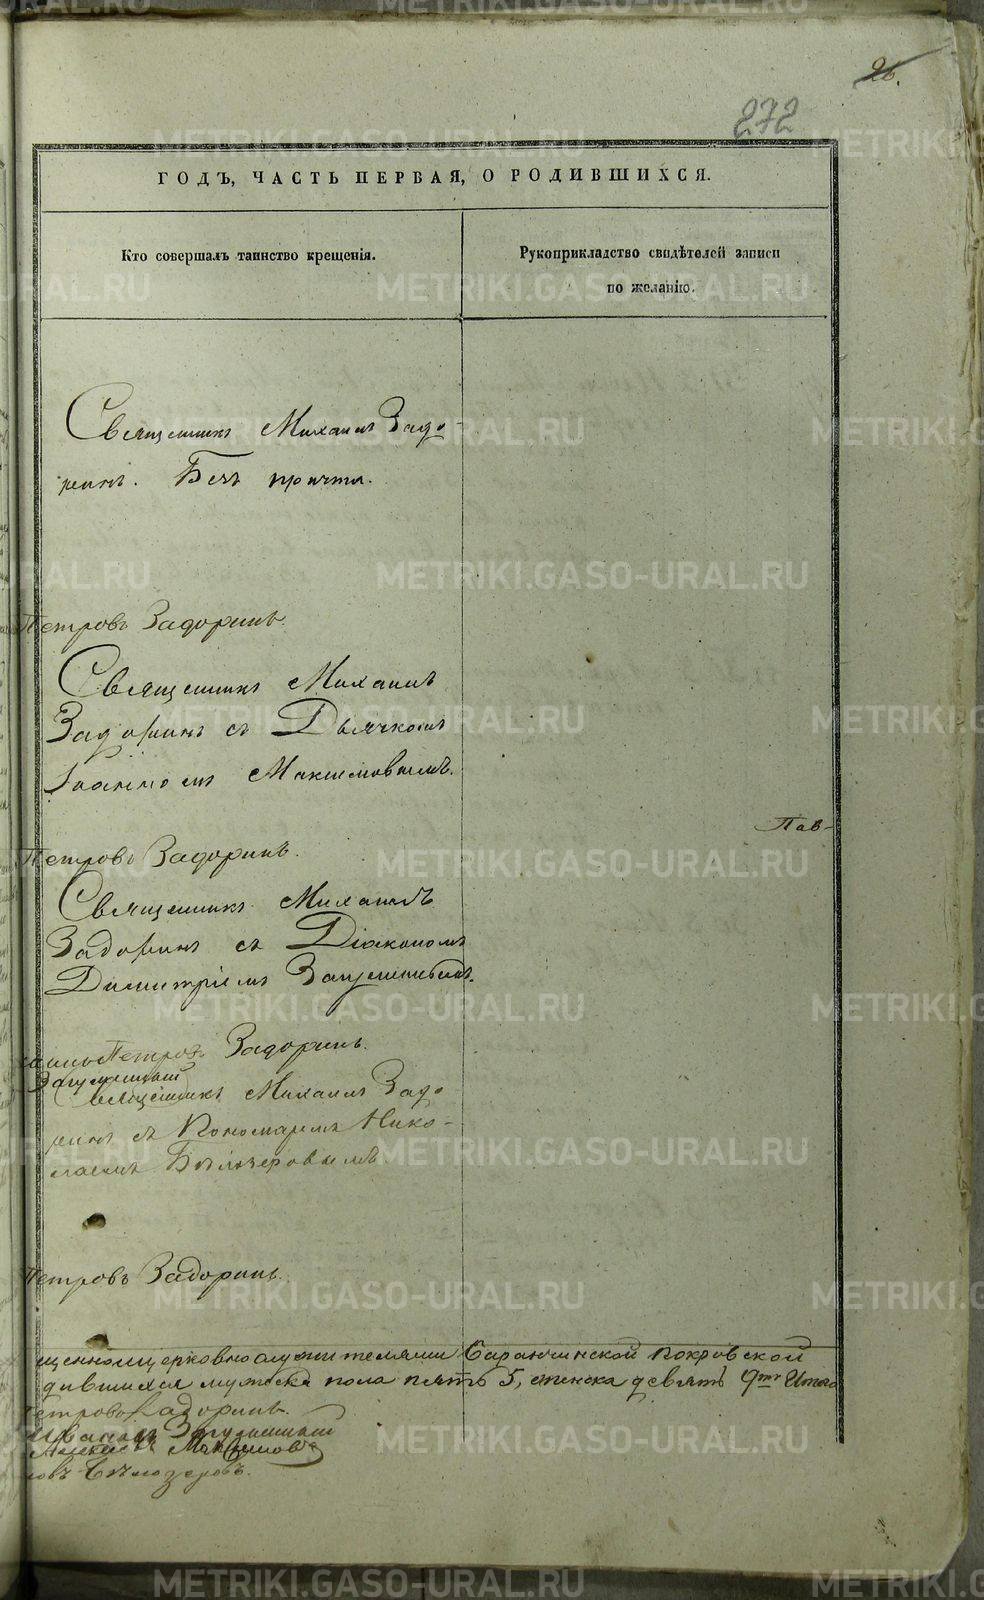 26.
272
ГОДЪ, ЧАСТЬ ПЕРВАЯ, О РОДИВШИХСЯ.
Кто совершалъ таинство крещенія.
Рукоприкладство свидѣтелей записи
по желанію.
Священникъ Михаилъ Задо-
ринъ. Безъ причта.
Петровъ Задоринъ.
Священникъ Михаилъ
Задоринъ съ Дьячкомъ
Іоанномъ Максимовымъ.
Пав-
Петровъ Задоринъ.
Священникъ Михаилъ
Задоринъ съ Діакономъ
Димитріемъ
Петровъ Задоринъ.
Священникъ Михаилъ Задо-
ринъ съ Пономаремъ Нико-
лаемъ Бѣлозеровымъ.
Петровъ Задоринъ.
щенноцерковнослужителями Баранчинской Покровской
дившихся мужеска пола пять 5, женска девять 9ть Итого
Петровъ Задоринъ.
Максимовъ
ловъ Бѣлозеровъ.
METRIKI.GASO-URAL.RU